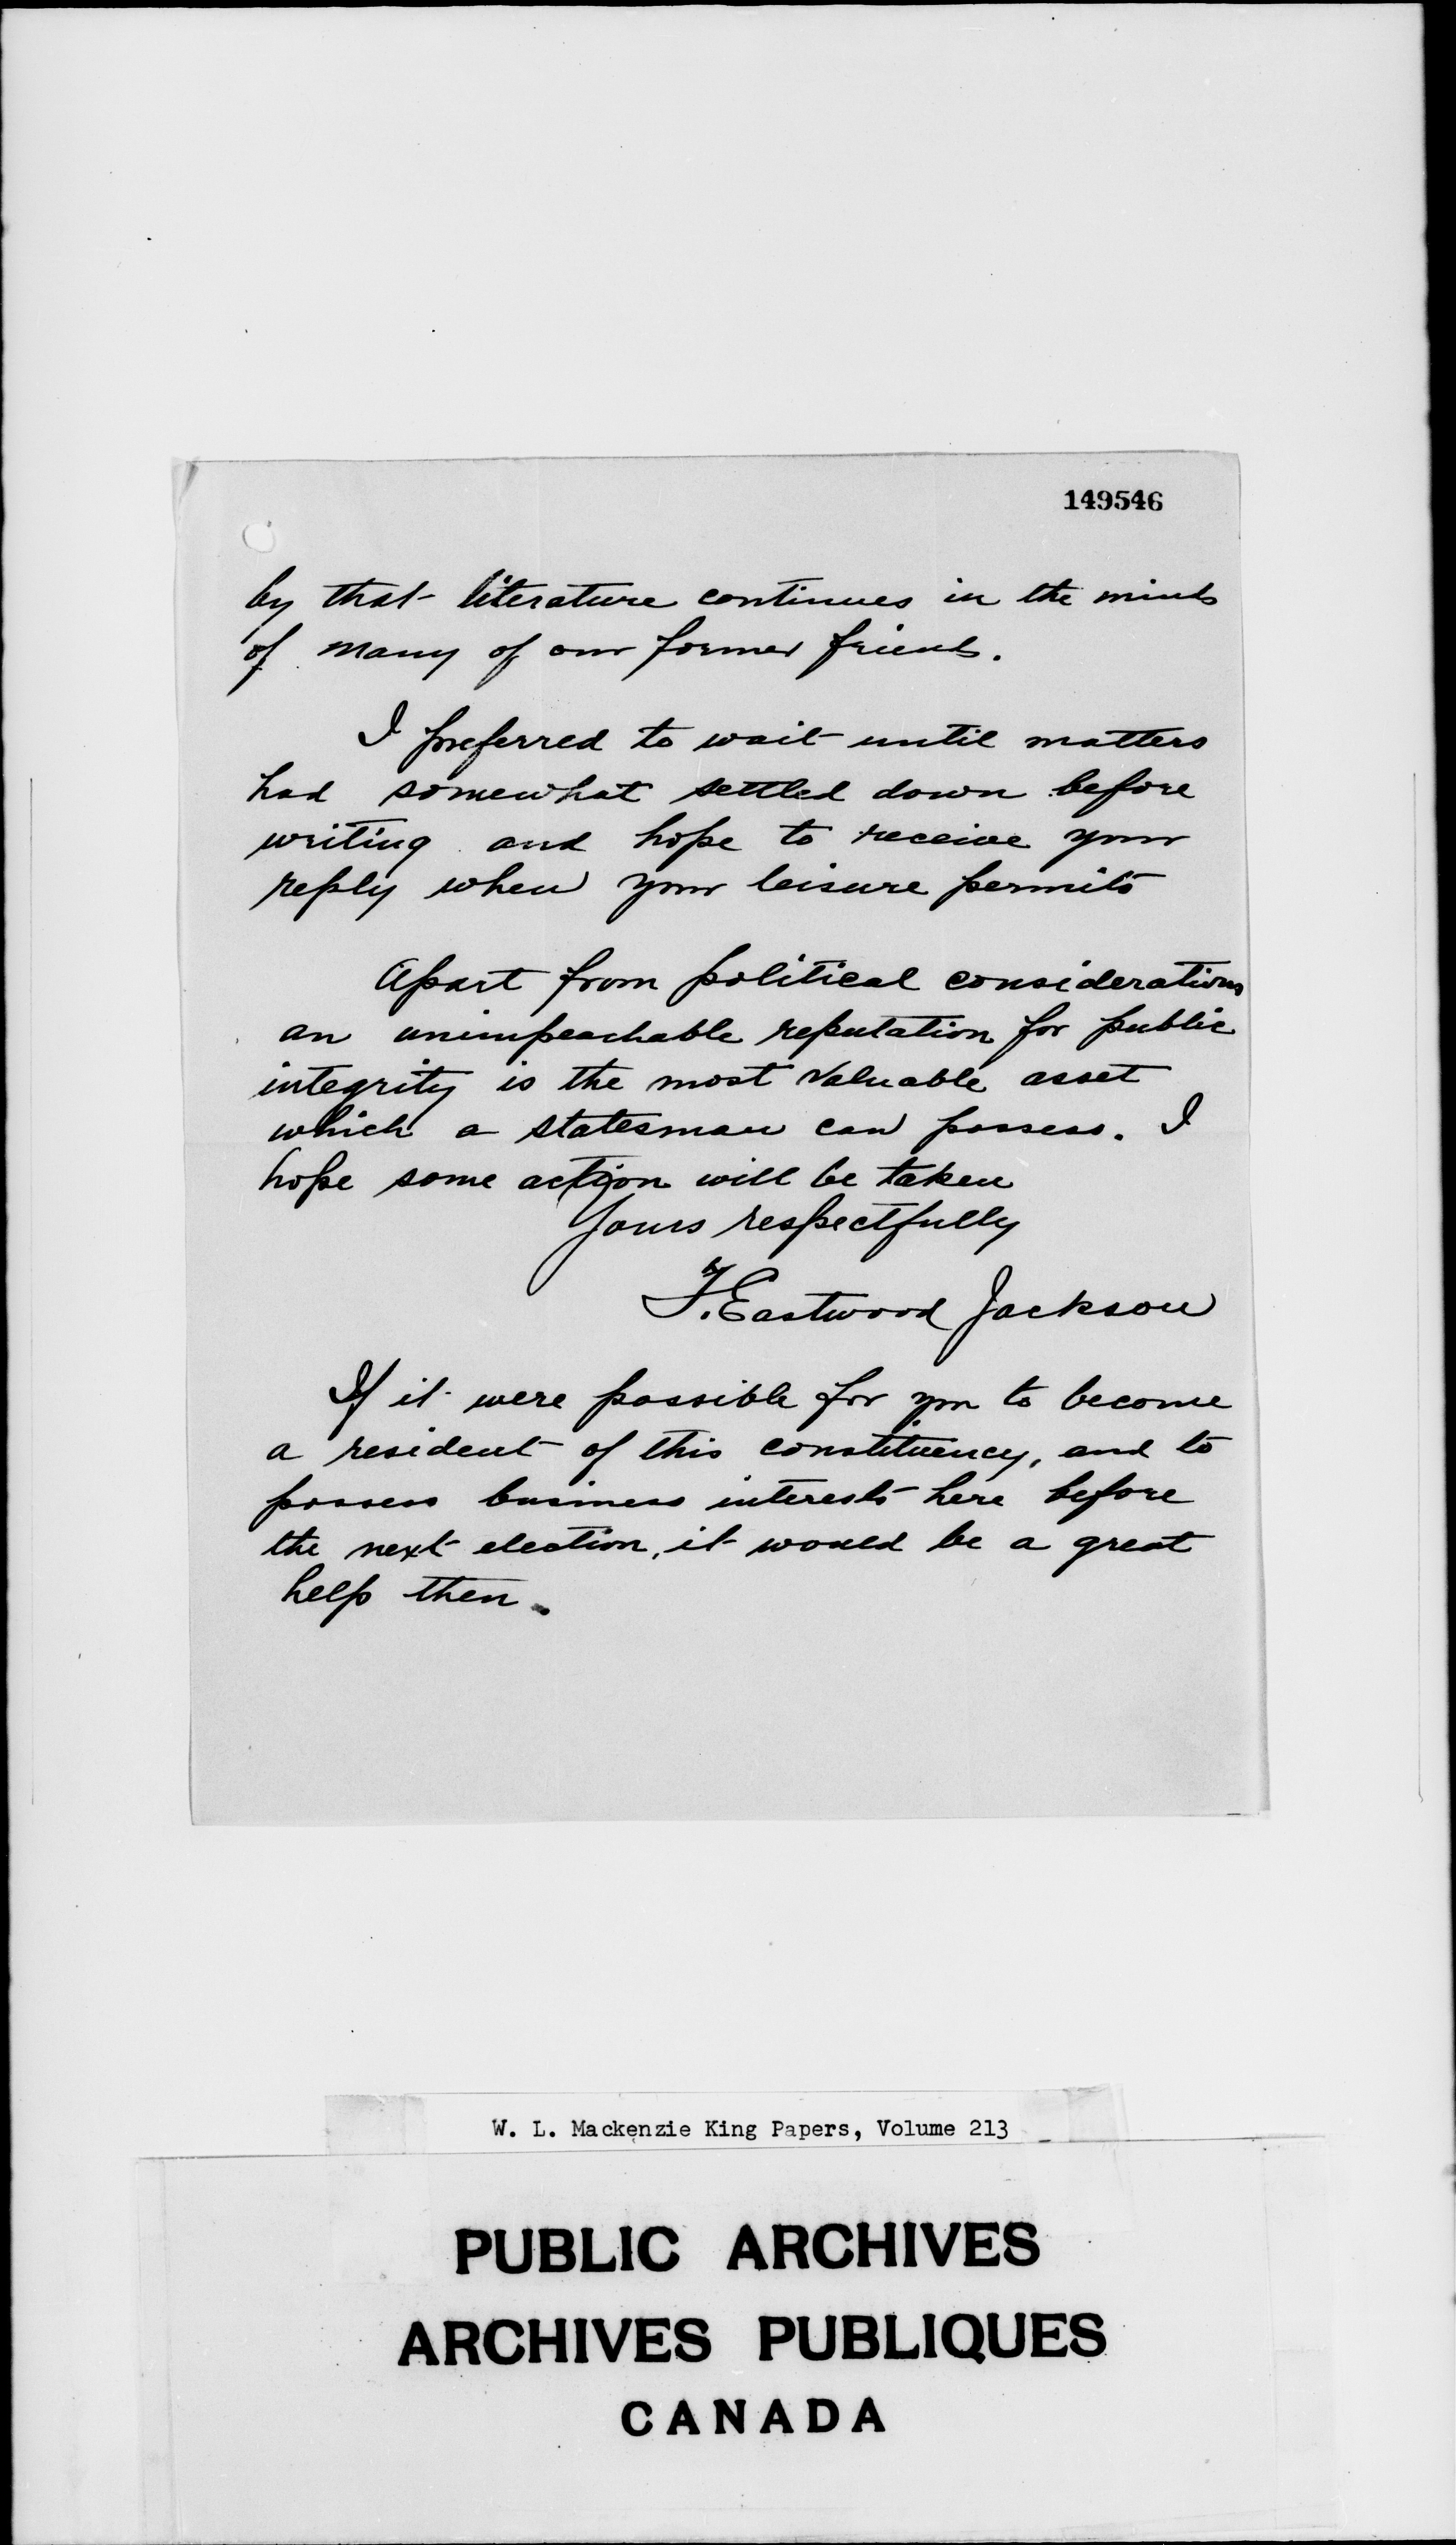 149546
by that literature continues in the minds
of many of our former friends.
I preferred to wait until matters
had somewhat settled down before
writing and hope to receive your
reply when your leisure permits
Apart from political considerations
an unimpeachable reputation for public
integrity is the most valuable asset
which a statesman can possess. I
hope some action will be taken
Yours respectfully
F. Eastwood Jackson
If it were possible for you to become
a resident of this constituency, and to
possess business interests here before
the next election, it would be a great
help then.
W. L. Mackenzie King Papers, Volume 213
PUBLIC ARCHIVES
ARCHIVES PUBLIQUES
CANADA